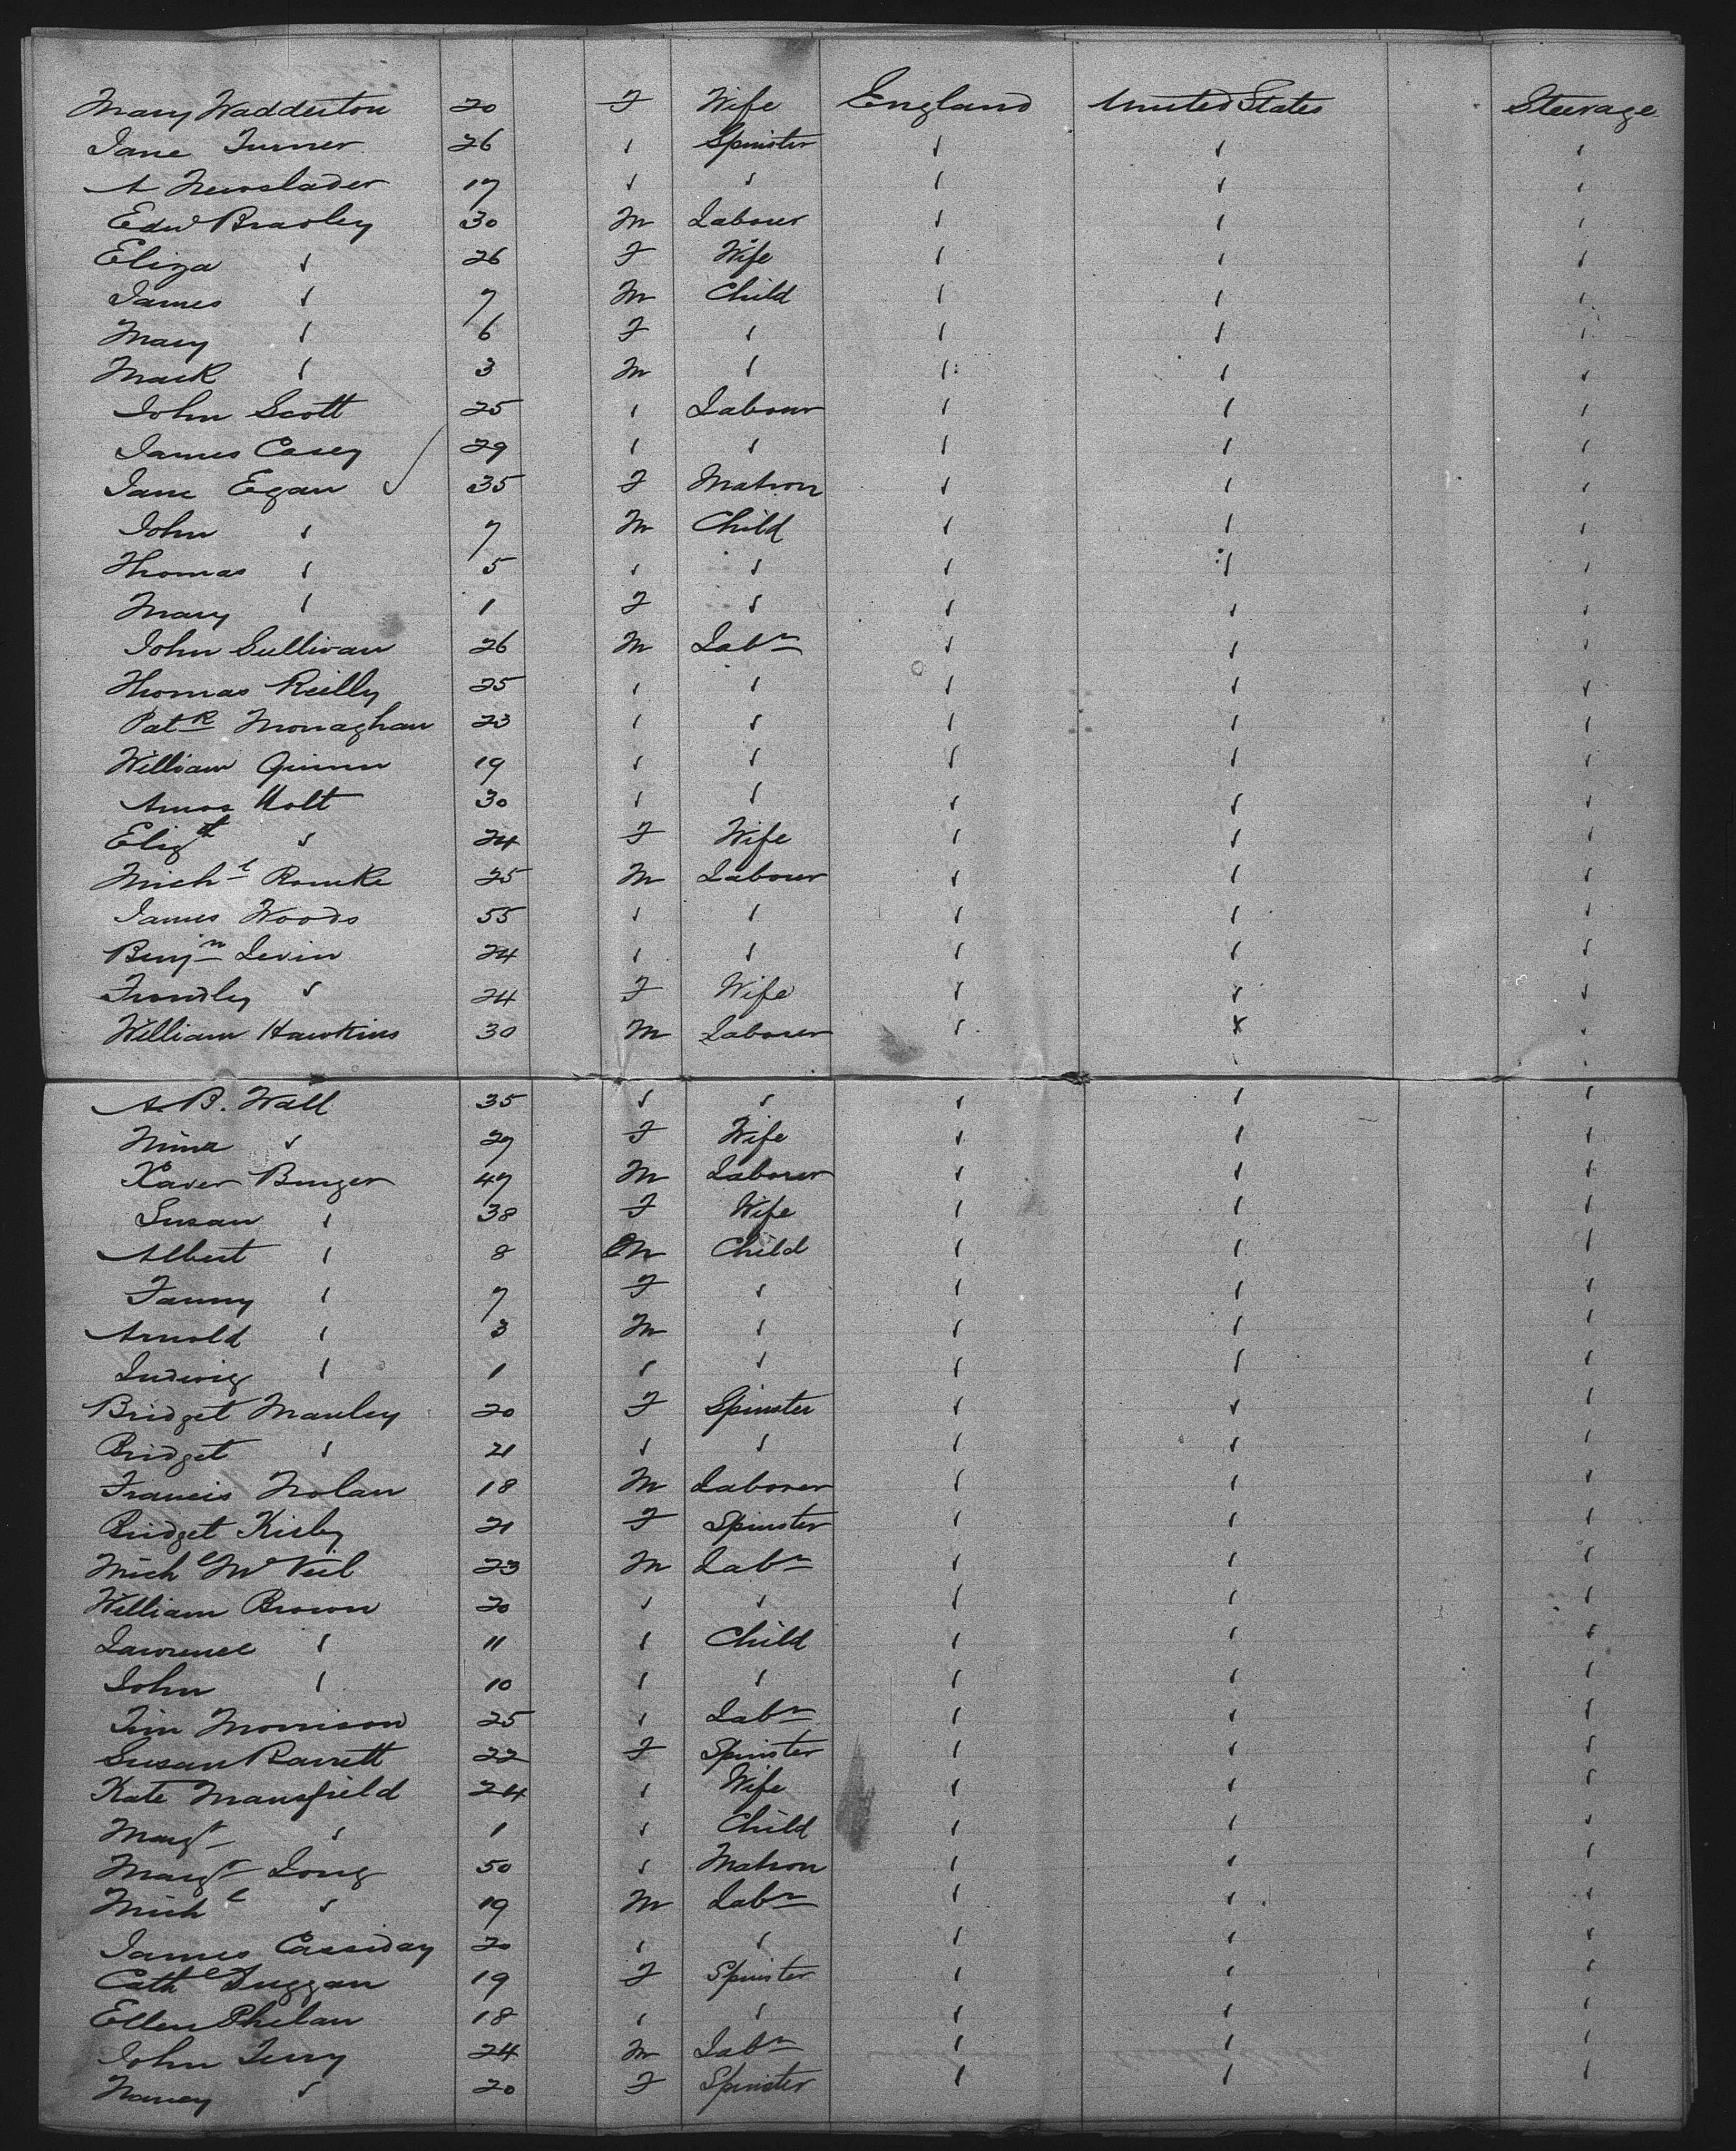 Mary Wadderton 20 F Wife England United States Steerage
Jane Turner 26 " Spinster " " "
A Newslader 17 " " " " "
Edwd Brasley 30 M Labourer " " "
Eliza " 26 F Wife " " "
James " 7 M Child " " "
Mary " 6 F " " " "
Mark " 3 M " " " "
John Scott 25 " Labour " " "
James Casey 29 " " " " "
Jane Egan ✓ 35 F Matron " " "
John " 7 M Child " " "
Thomas " 5 " " " " "
Mary " 1 F " " " "
John Sullivan 26 M Labr " " "
Thomas Reilly 25 " " " " "
Patk Monaghan 23 " " " " "
William Quinn 19 " " " " "
Amos Holt 30 " " " " "
Elizth " 24 F Wife " " "
Michl Rourke 25 M Labourer " " "
James Woods 55 " " " " "
Benjn Levin 24 " " " " "
" 24 F Wife " " "
William Hawkins 30 M Labourer " " "
A. B. Wall 35 " " " " "
Mina " 27 F Wife " " "
Xaver Burger 47 M Laborer " " "
Susan " 38 F Wife " " "
Albert " 8 M Child " " "
Fanny " 7 F " " " "
Arnold " 3 M " " " "
Ludwig " 1 " " " " "
Bridget Manley 20 F Spinster " " "
Bridget " 21 " " " " "
Francis Nolan 18 M Laborer " " "
Bridget Kirby 21 F Spinster " " "
Michl McNeil 23 M Labr " " "
William Brown 20 " " " " "
Lawrence " 11 " Child " " "
John " 10 " " " " "
Tim Morrison 25 " Labr " " "
Susan Barrett 22 F Spinster " " "
Kate Mansfield 24 " Wife " " "
Margt " 1 " Child " " "
Margt Long 50 " Matron " " "
Michl " 19 M Labr " " "
James Cassiday 20 " " " " "
Cathe Duggan 19 F Spinster " " "
Ellen Phelan 18 " " " " "
John Terry 24 M Labr " " "
Nancy " 20 F Spinster " " "